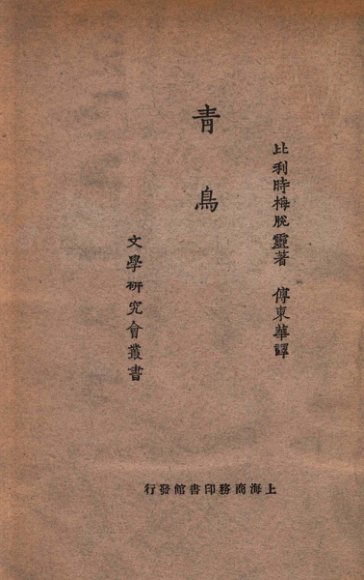 比利時梅脫靈著 傅東華譯
青鳥
文學研究會叢書
上海商務印書館發行